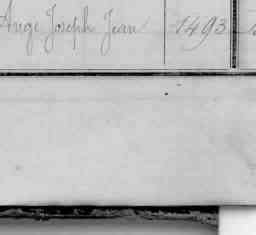 Ange Joseph Jean 1493